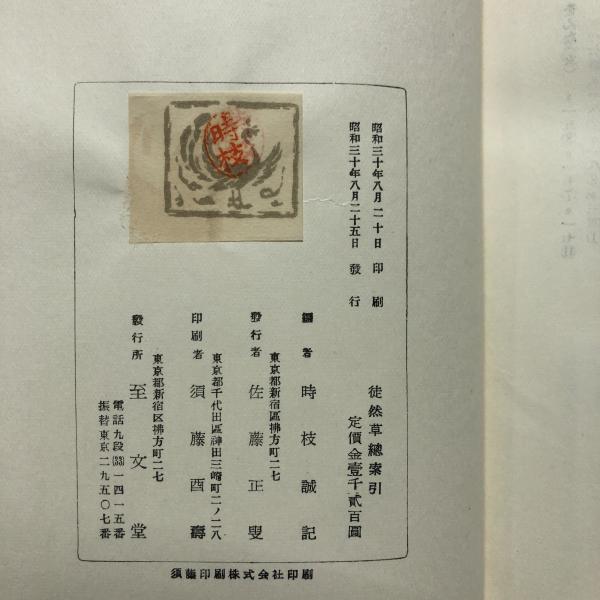 昭和三十年八月二十日印刷
昭和三十年八月二十五日發行
時枝
徒然草總索引
定價金壹千貳百圓
編者 時枝誠記
東京都新宿區拂方町二七
發行者 佐藤正叟
東京都千代田區神田三崎町二ノ二八
印刷者 須藤酉壽
東京都新宿区拂方町二七
發行所 至文堂
電話九段(33)一四一五番
振替東京二九五〇七番
須藤印刷株式会社印刷